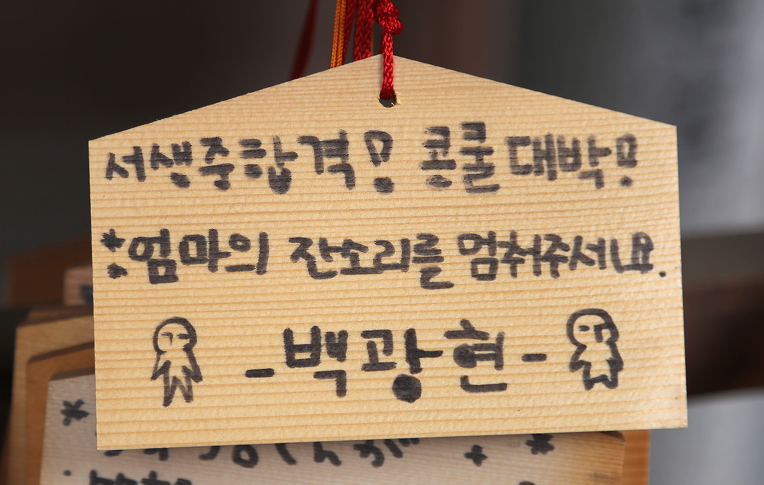 서생중합격! 콩쿨대박!
* 엄마의 잔소리를 멈춰주세요.
- 백광현 -